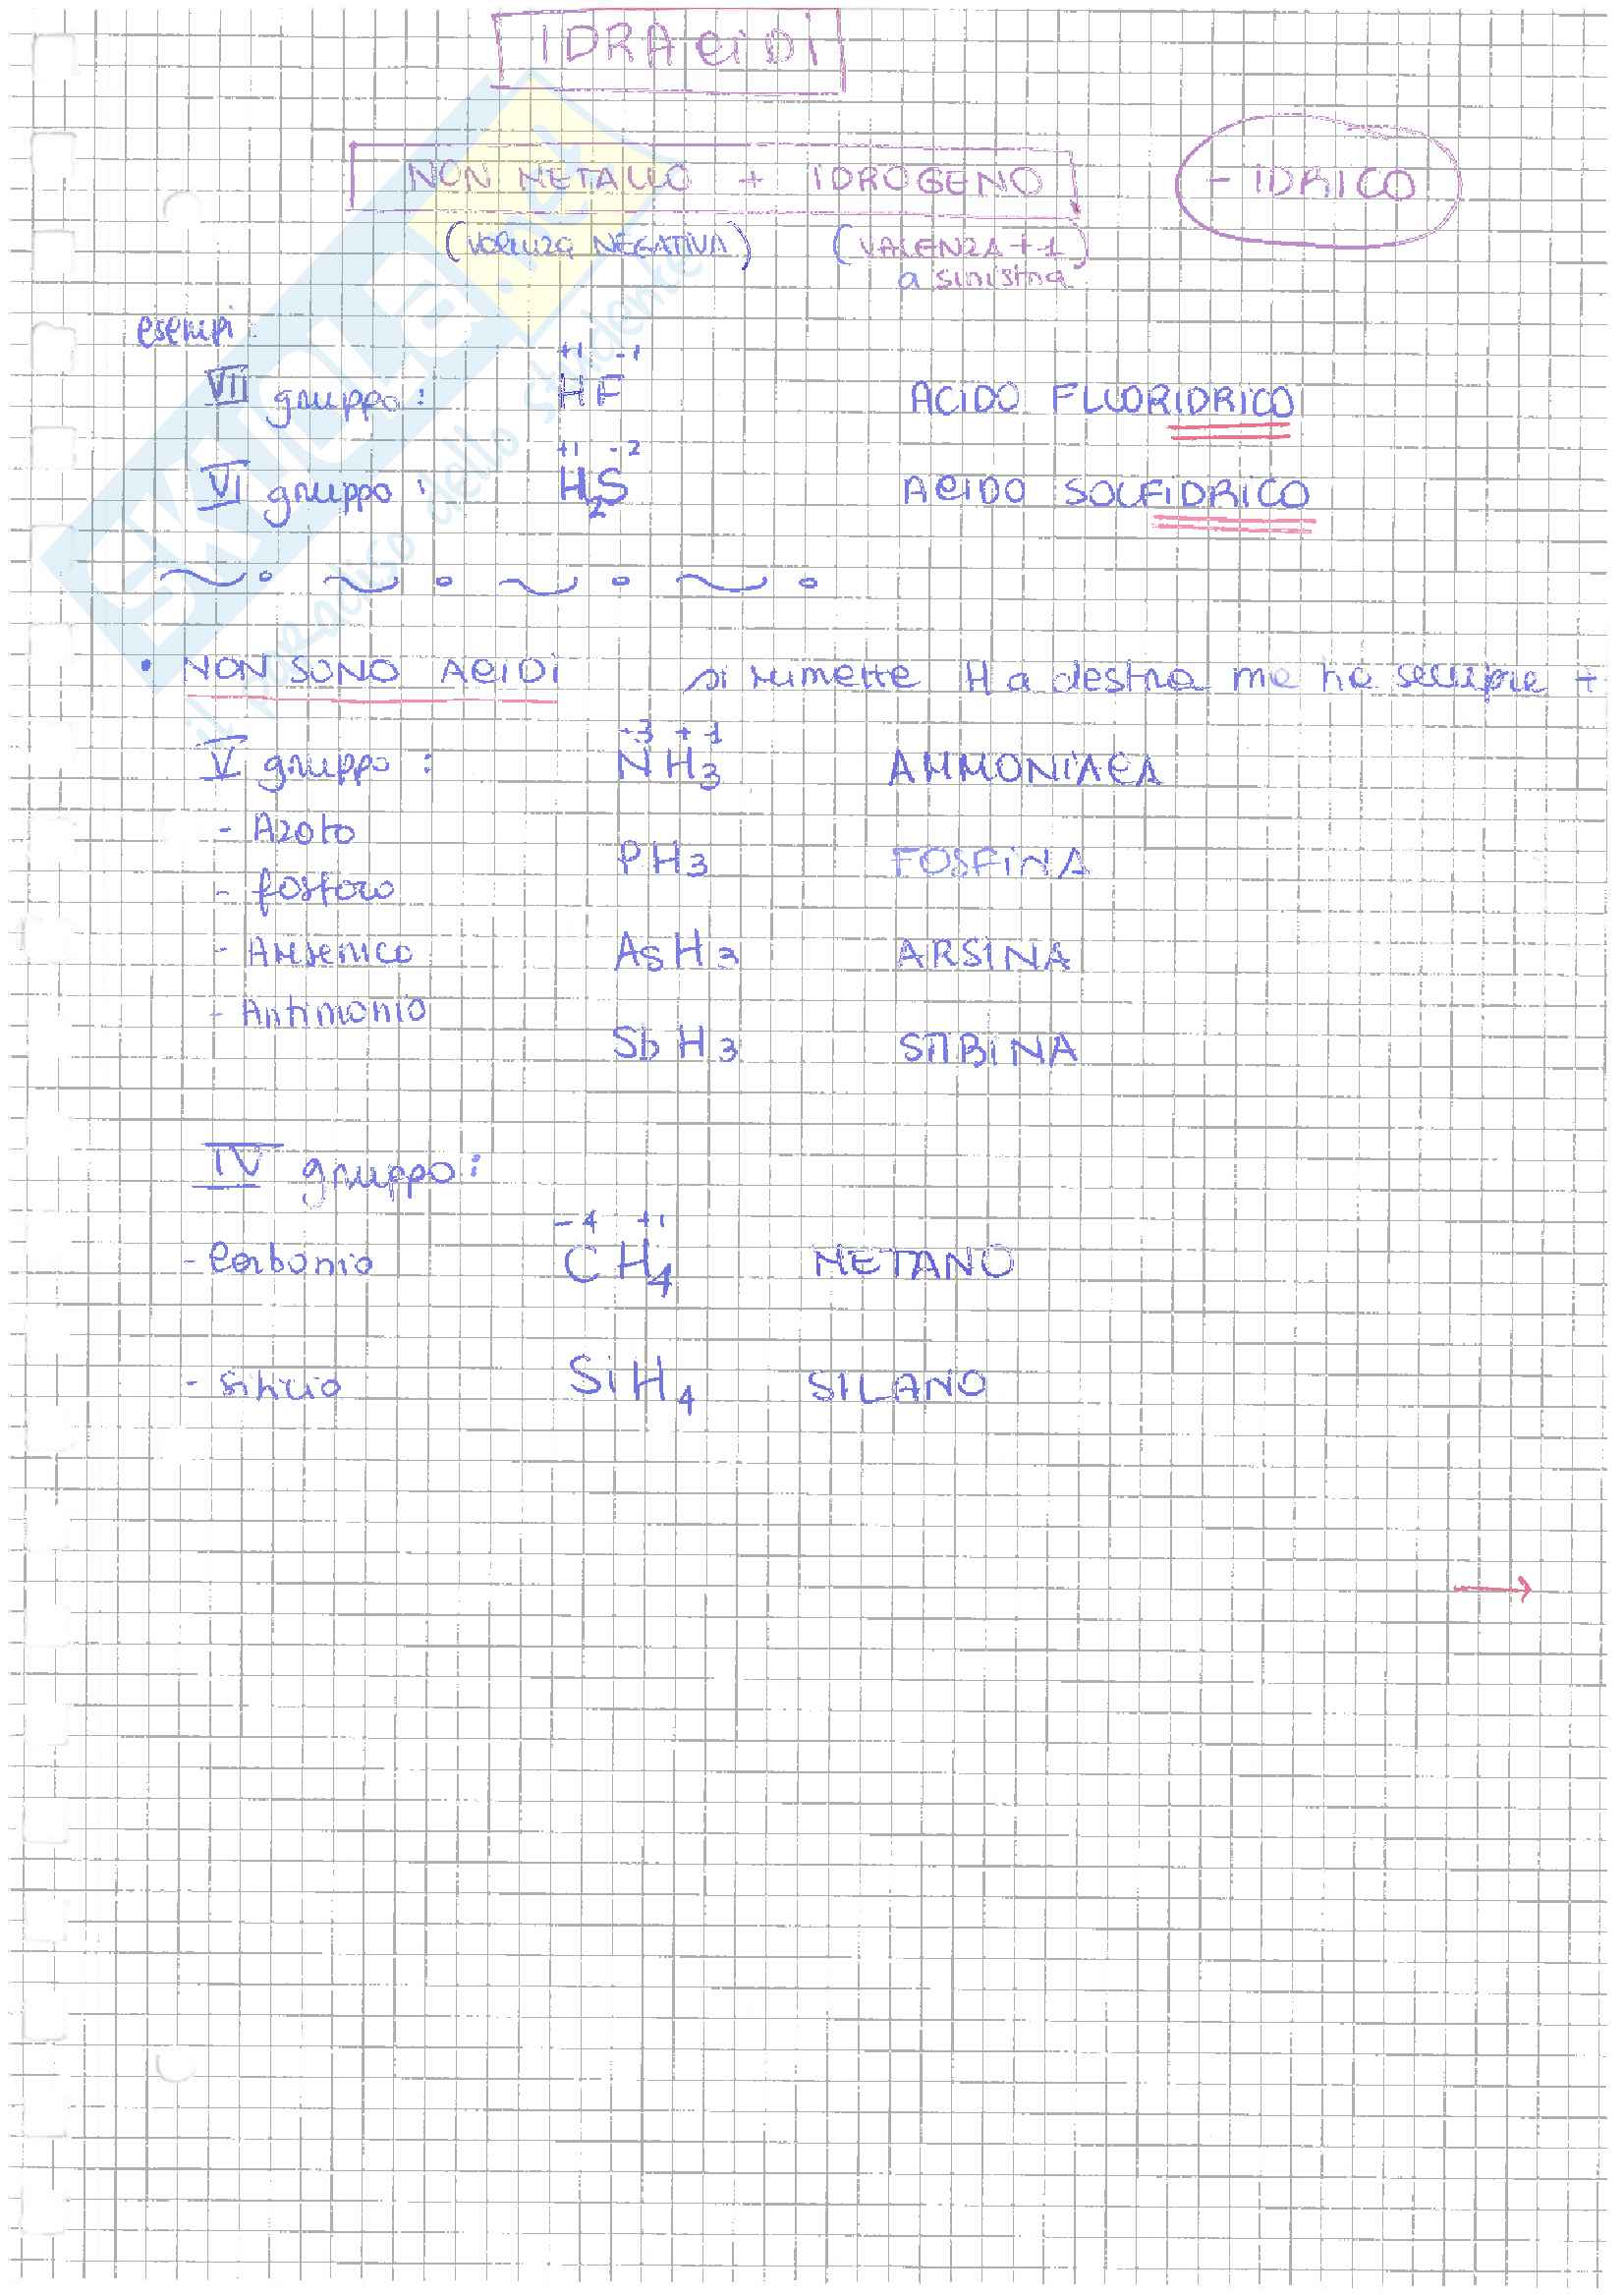 IDRACIDI
NON METALLO + IDROGENO -IDRICO
(VALENZA NEGATIVA) (VALENZA +1)
a sinistra
esempi:
+1 -1
VII gruppo: HF ACIDO FLUORIDRICO
+1 -2
VI gruppo: H2S ACIDO SOLFIDRICO
• NON SONO ACIDI si rimette H a destra ma ha sempre +
-3 +1
V gruppo: NH3 AMMONIACA
- Azoto
PH3 FOSFINA
- fosforo
- Arsenico AsH3 ARSINA
- Antimonio
SbH3 STIBINA
IV gruppo:
-4 +1
- Carbonio CH4 METANO
- Silicio SiH4 SILANO